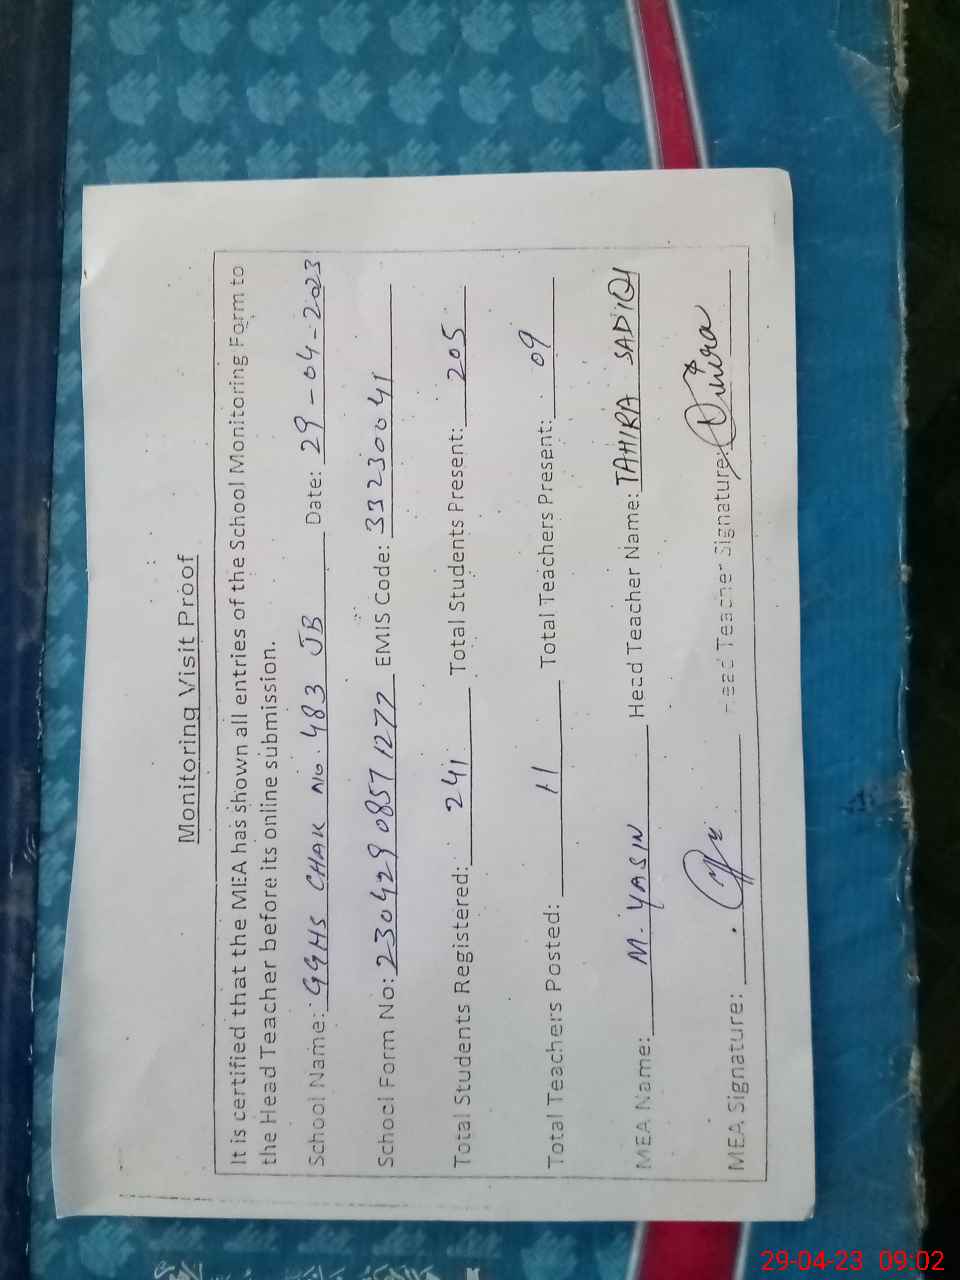 Monitoring Visit Proof
It is certified that the MEA has shown all entries of the School Monitoring Form to
the Head Teacher before its online submission.
School Name: GGHS CHAK No. 483 JB Date: 29-04-2023
School Form No: 230429 0857 1277 EMIS Code: 33230041
Total Students Registered: 241 Total Students Present: 205
Total Teachers Posted: 11 Total Teachers Present: 09
MEA Name: M. YASIN Head Teacher Name: TAHIRA SADIQI
MEA Signature: Head Teacher Signature:
29-04-23 09:02